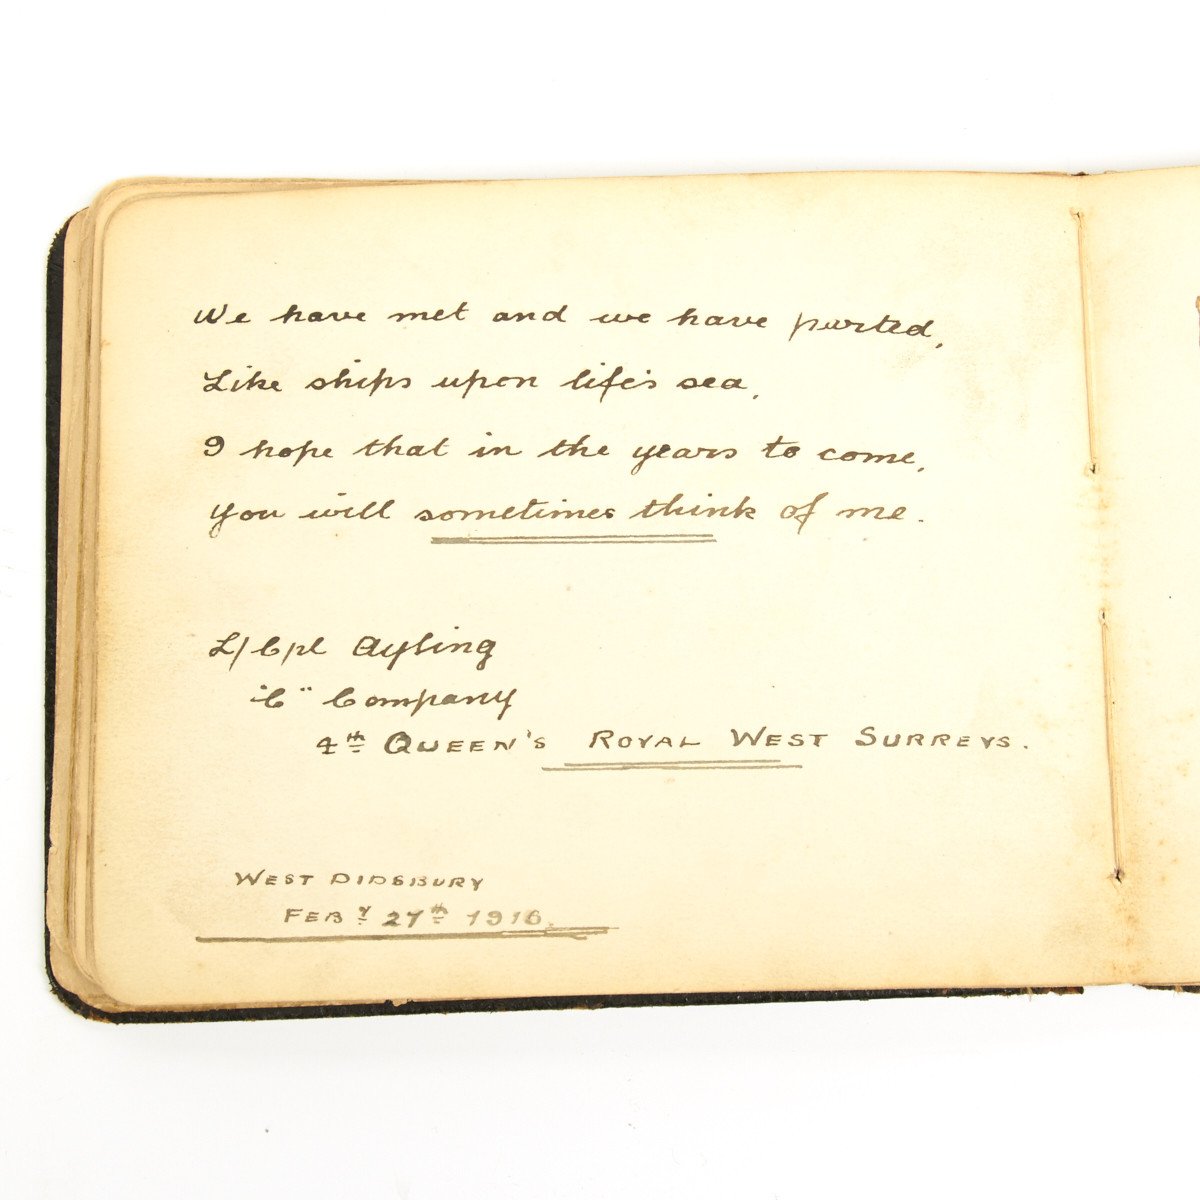 We have met and we have parted,
Like ships upon life's sea,
I hope that in the years to come,
You will sometimes think of me.
L/Cpl Ayling
"C" Company
4th QUEEN'S ROYAL WEST SURREYS.
WEST DIDSBURY
FEBY 27th 1916.